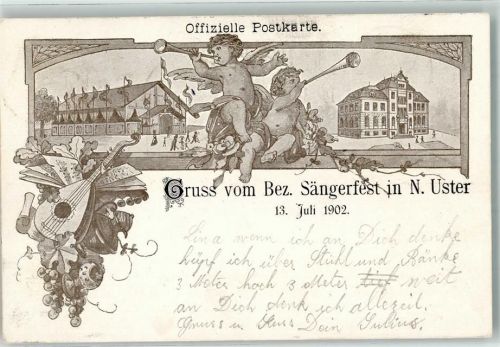 Offizielle Postkarte.
Gruss vom Bez. Sängerfest in N. Uster
13. Juli 1902.
Lina wenn ich an Dich denke
hüpf ich über Stuhl und Bänke
3 Meter hoch 3 Meter tief weit
an Dich denk ich allezeit.
Gruss u Kuss Dein Julius.